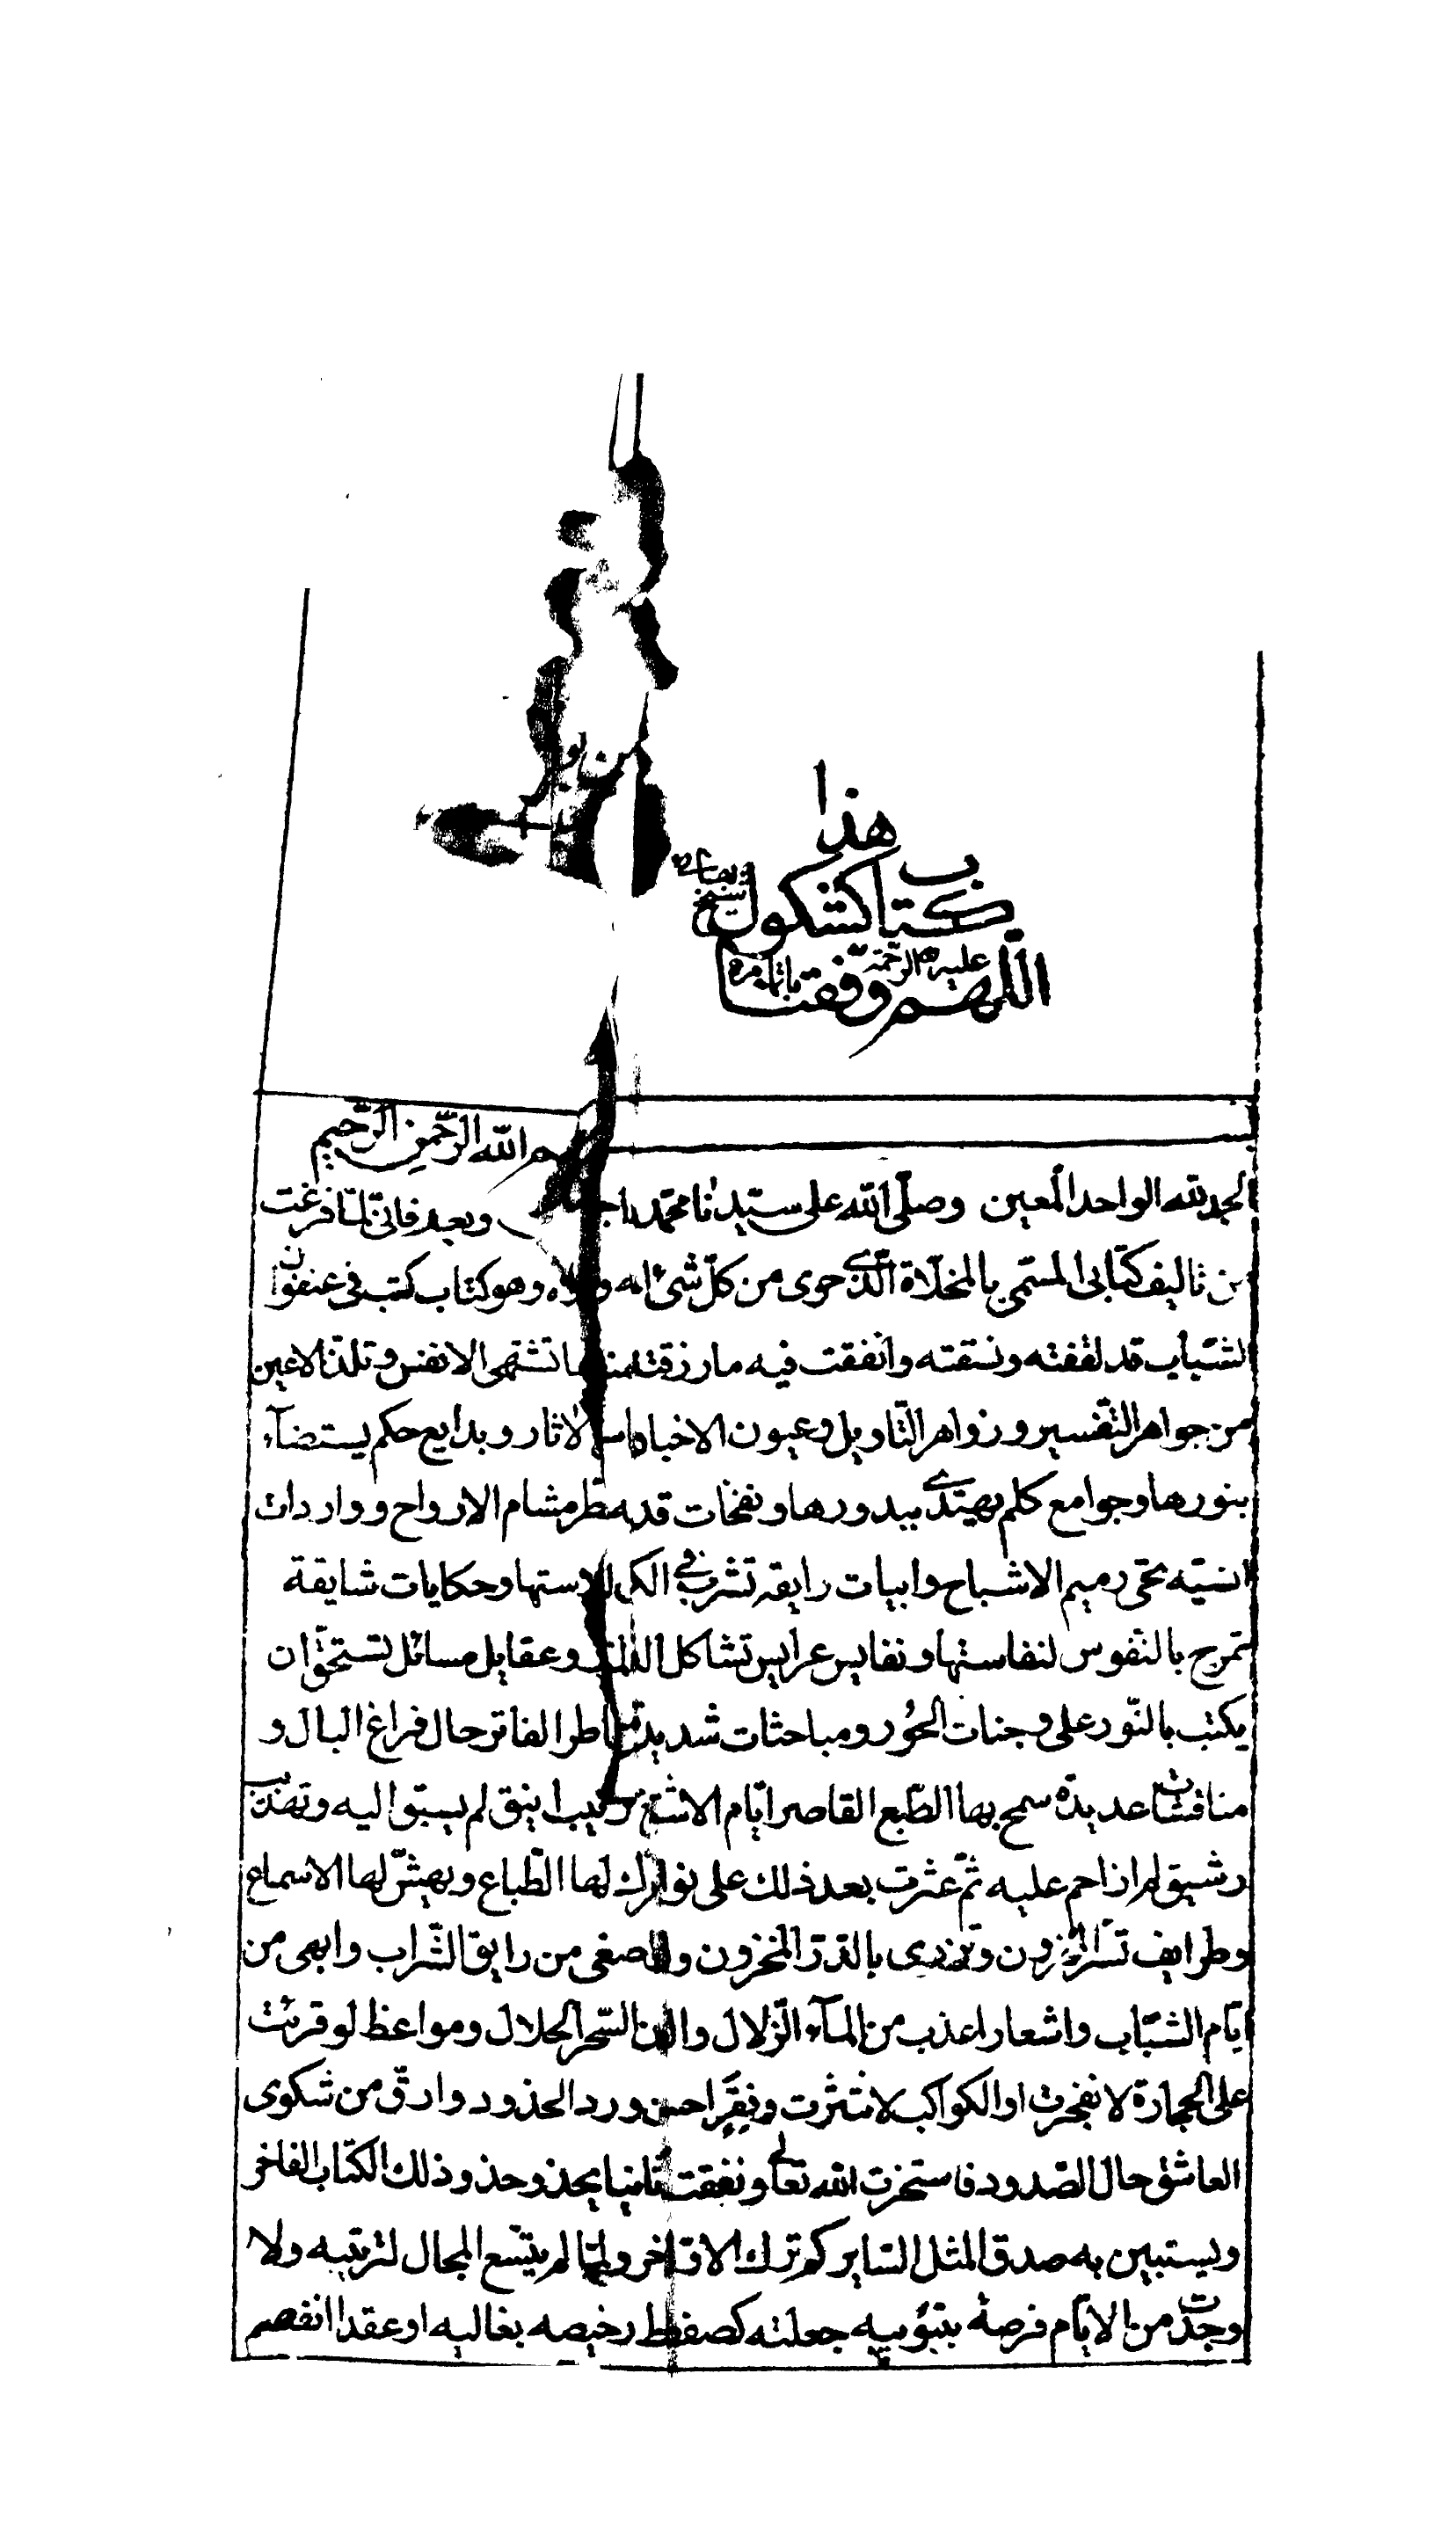 هذا
كتاب كشكول شيخ بهائي
عليه الرحمة
اللهم وفقنا باتمامه
الله الرحمن الرحيم
الحمد لله الواحد المعين وصلى الله على سيدنا محمد وبعد فانى لما فرغت
من تاليف كتابى المسمى بالمخلاة الذى حوى من كل شىء وهو كتاب كتب فى عنفوان
الشباب قد لفقته ونسقته وانفقت فيه ما رزقته تشتهى الانفس وتلذ الاعين
من جواهر التفسير وزواهر التاويل وعيون الاخبار الاثار وبدايع حكم يستضآء
بنورها وجوامع كلم يهتدى ببدورها ونفحات مشام الارواح وواردات
انسيه تحى رميم الاشباح وابيات رايقه تشرب فى وحكايات شايقة
تمرج بالنفوس لنفاستها ونفايس عرايس تشاكل وعقايل مسائل تستحق ان
يكتب بالنور على وجنات الحور ومباحثات الفاتر حال فراغ البال و
مناقشات عديدة سمح بها الطبع القاصر ايام انيق لم يسبق اليه وتهذيب
رشيق لم ازاحم عليه ثم عثرت بعد ذلك على نوادر لها الطباع ويهش لها الاسماع
وطرايف تسر المحزون وتزدرى بالدر المخزون من رايق الشراب وابهى من
ايام الشباب واشعار اعذب من المآء الزلال السحر الحلال ومواعظ لو قرئت
على الحجارة لانفجرت او الكواكب لانتثرت وفقر احسن ورد الخدود وارق من شكوى
العاشق حال الصدود فاستخرت الله تعالى ونفقت ثانيا يحذو حذو ذلك الكتاب الفاخر
ويستبين به صدق المثل الساير كم ترك الاول للاخر ولما لم يتسع المجال لترتيبه ولا
وجدت من الايام فرصة بتبويبه جعلته كصفط رخيصه بغاليه او عقد انفصم